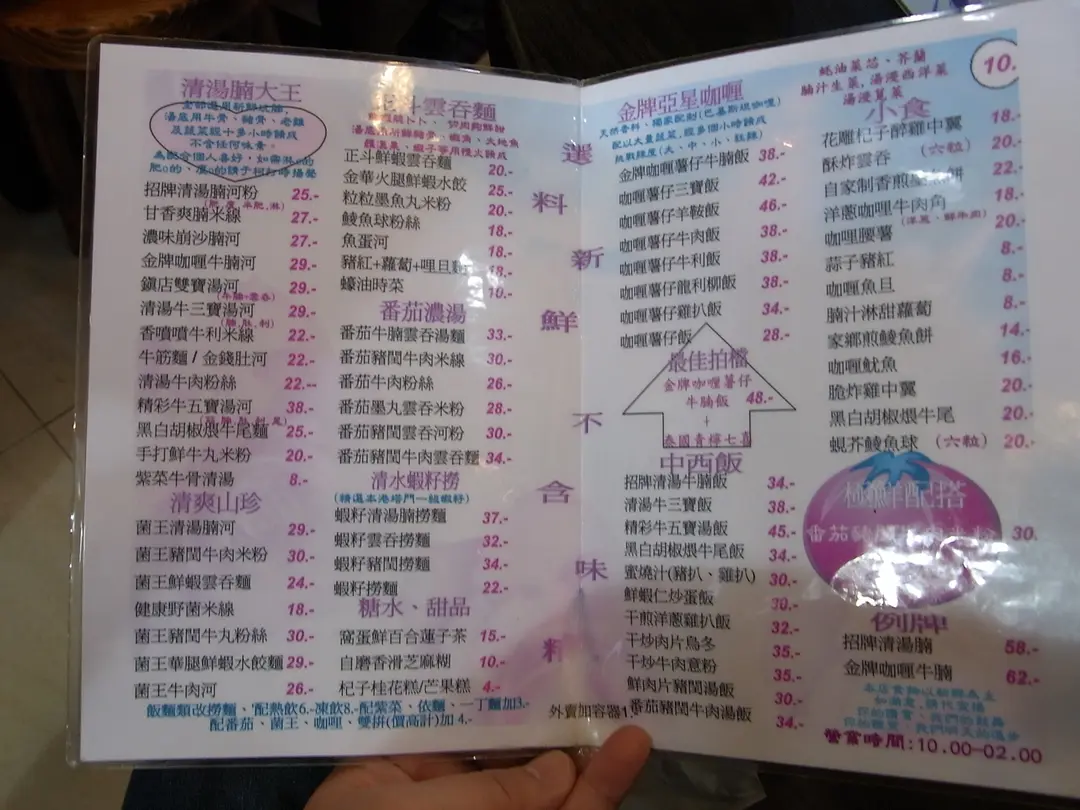 清湯腩大王
湯底用牛骨、豬骨、老雞
及蔬菜经十多小時燒成
不含任何味素。
招牌清湯腩河粉 25.-
甘香爽腩米線 27.-
濃味崩沙腩河 27.-
金牌咖喱牛腩河 29.-
鎮店雙寶湯河 29.-
清湯牛三寶湯河 29.-
香噴噴牛利米線 22.-
牛筋麵 / 金錢肚河 22.-
清湯牛肉粉絲 22.--
精彩牛五寶湯河 38.-
黑白胡椒煨牛尾麵 25.-
手打鮮牛丸米粉 20.-
紫菜牛骨清湯 8.-
清爽山珍
菌王清湯腩河 29.-
菌王豬閏牛肉米粉 30.-
菌王鮮蝦雲吞麵 24.-
健康野菌米線 18.-
菌王豬閏牛丸粉絲 30.-
菌王華腿鮮蝦水餃麵 29.-
菌王牛肉河 26.-
正斗雲吞麵
正斗鮮蝦雲吞麵 20.-
金華火腿鮮蝦水餃 25.-
粒粒墨魚丸米粉 20.-
鯪魚球粉絲 18.-
魚蛋河 18.-
豬紅+蘿蔔+哩旦麵 18.-
蠔油時菜 10.-
番茄濃湯
番茄牛腩雲吞湯麵 33.-
番茄豬閏牛肉米線 30.-
番茄牛肉粉絲 26.-
番茄墨丸雲吞米粉 28.-
番茄豬閏雲吞河粉 30.-
番茄豬閏牛肉雲吞麵 34.-
清水蝦籽撈
(精選本港塔門一級蝦籽)
蝦籽清湯腩撈麵 37.-
蝦籽雲吞撈麵 32.-
蝦籽豬閏撈麵 34.-
蝦籽撈麵 22.-
糖水、甜品
窩蛋鮮百合蓮子茶 15.-
自磨香滑芝麻糊 10.-
杞子桂花糕/芒果糕 4.-
飯麵類改撈麵、配熱飲6.-凍飲8.-配紫菜、依麵、一丁麵加3.-
配番茄、菌王、咖哩、雙拼(價高計)加 4.-
選料新鮮不含味精
外賣加容器1.
金牌亞星咖喱
天然香料、獨家配制(巴基斯坦咖喱)
配以大量蔬菜,經多個小時燒成
挑戰辣度(大、中、小、註辣)
金牌咖喱薯仔牛腩飯 38.-
咖喱薯仔三寶飯 42.-
咖喱薯仔羊鞍飯 46.-
咖喱薯仔牛肉飯 38.-
咖喱薯仔牛利飯 38.-
咖喱薯仔龍利柳飯 38.-
咖喱薯仔雞扒飯 34.-
咖喱薯仔飯 28.-
最佳拍檔
金牌咖喱薯仔
牛腩飯 48.-
+
泰國青檸七喜
中西飯
招牌清湯牛腩飯 34.-
清湯牛三寶飯 38.-
精彩牛五寶湯飯 45.-
黑白胡椒煨牛尾飯 34.-
蜜燒汁(豬扒、雞扒) 30.-
鮮蝦仁炒蛋飯 30.-
干煎洋蔥雞扒飯 32.-
干炒肉片烏冬 35.-
干炒牛肉意粉 35.-
鮮肉片豬閏湯飯 30.-
番茄豬閏牛肉湯飯 34.-
蚝油菜芯、芥蘭
腩汁生菜,湯浸西洋菜
湯浸莧菜
10.
小食
花雕杞子醉雞中翼 18.-
酥炸雲吞 (六粒) 20.-
18.-
洋蔥咖哩牛肉角 20.-
咖哩腰薯 8.-
蒜子豬紅 8.-
咖喱魚旦 8.-
腩汁淋甜蘿蔔 14.-
家鄉煎鯪魚餅 16.-
咖喱魷魚 20.-
脆炸雞中翼 20.-
黑白胡椒煨牛尾 20.-
蜆芥鯪魚球 (六粒) 20.-
極鮮配搭
30.
例牌
招牌清湯腩 58.-
金牌咖喱牛腩 62.-
營業時間:10.00-02.00